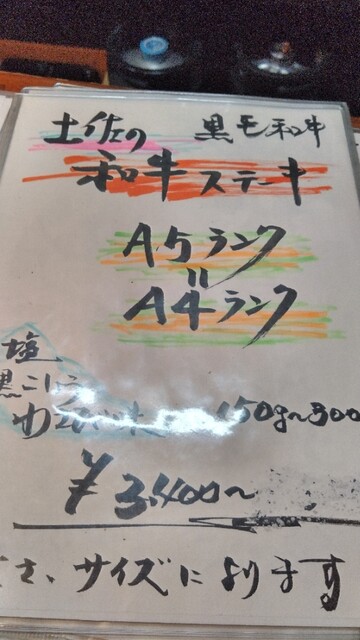 土佐の 黒毛和牛
和牛ステーキ
A5ランク
〃
A4ランク
塩
黒こしょう
150g〜300
¥3.400〜
さ、サイズになります